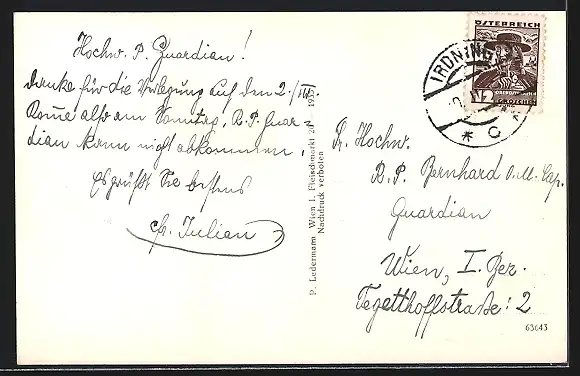 Hochw. P. Guardian!
Danke für die Verlegung auf den 2./III.
Komme also am Samstag, R. P. Guar-
dian kann nicht abkommen.
Es grüßt Sie bestens
fr. Julian
P. Ledermann Wien I. Fleischmarkt 20
Nachdruck verboten
ÖSTERREICH
IRDNING
GROSCHEN
* C
Sr. Hochw.
R. P. Bernhard O.M. Cap.
Guardian
Wien, I. Bez.
Tegetthoffstraße: 2
63643